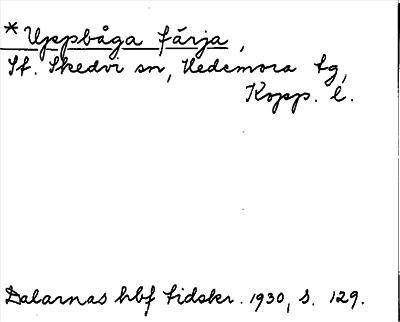 * Uppbåga färja,
St. Skedvi sn, Hedemora tg,
Kopp. l.
Dalarnas hbf tidskr. 1930, s. 129.